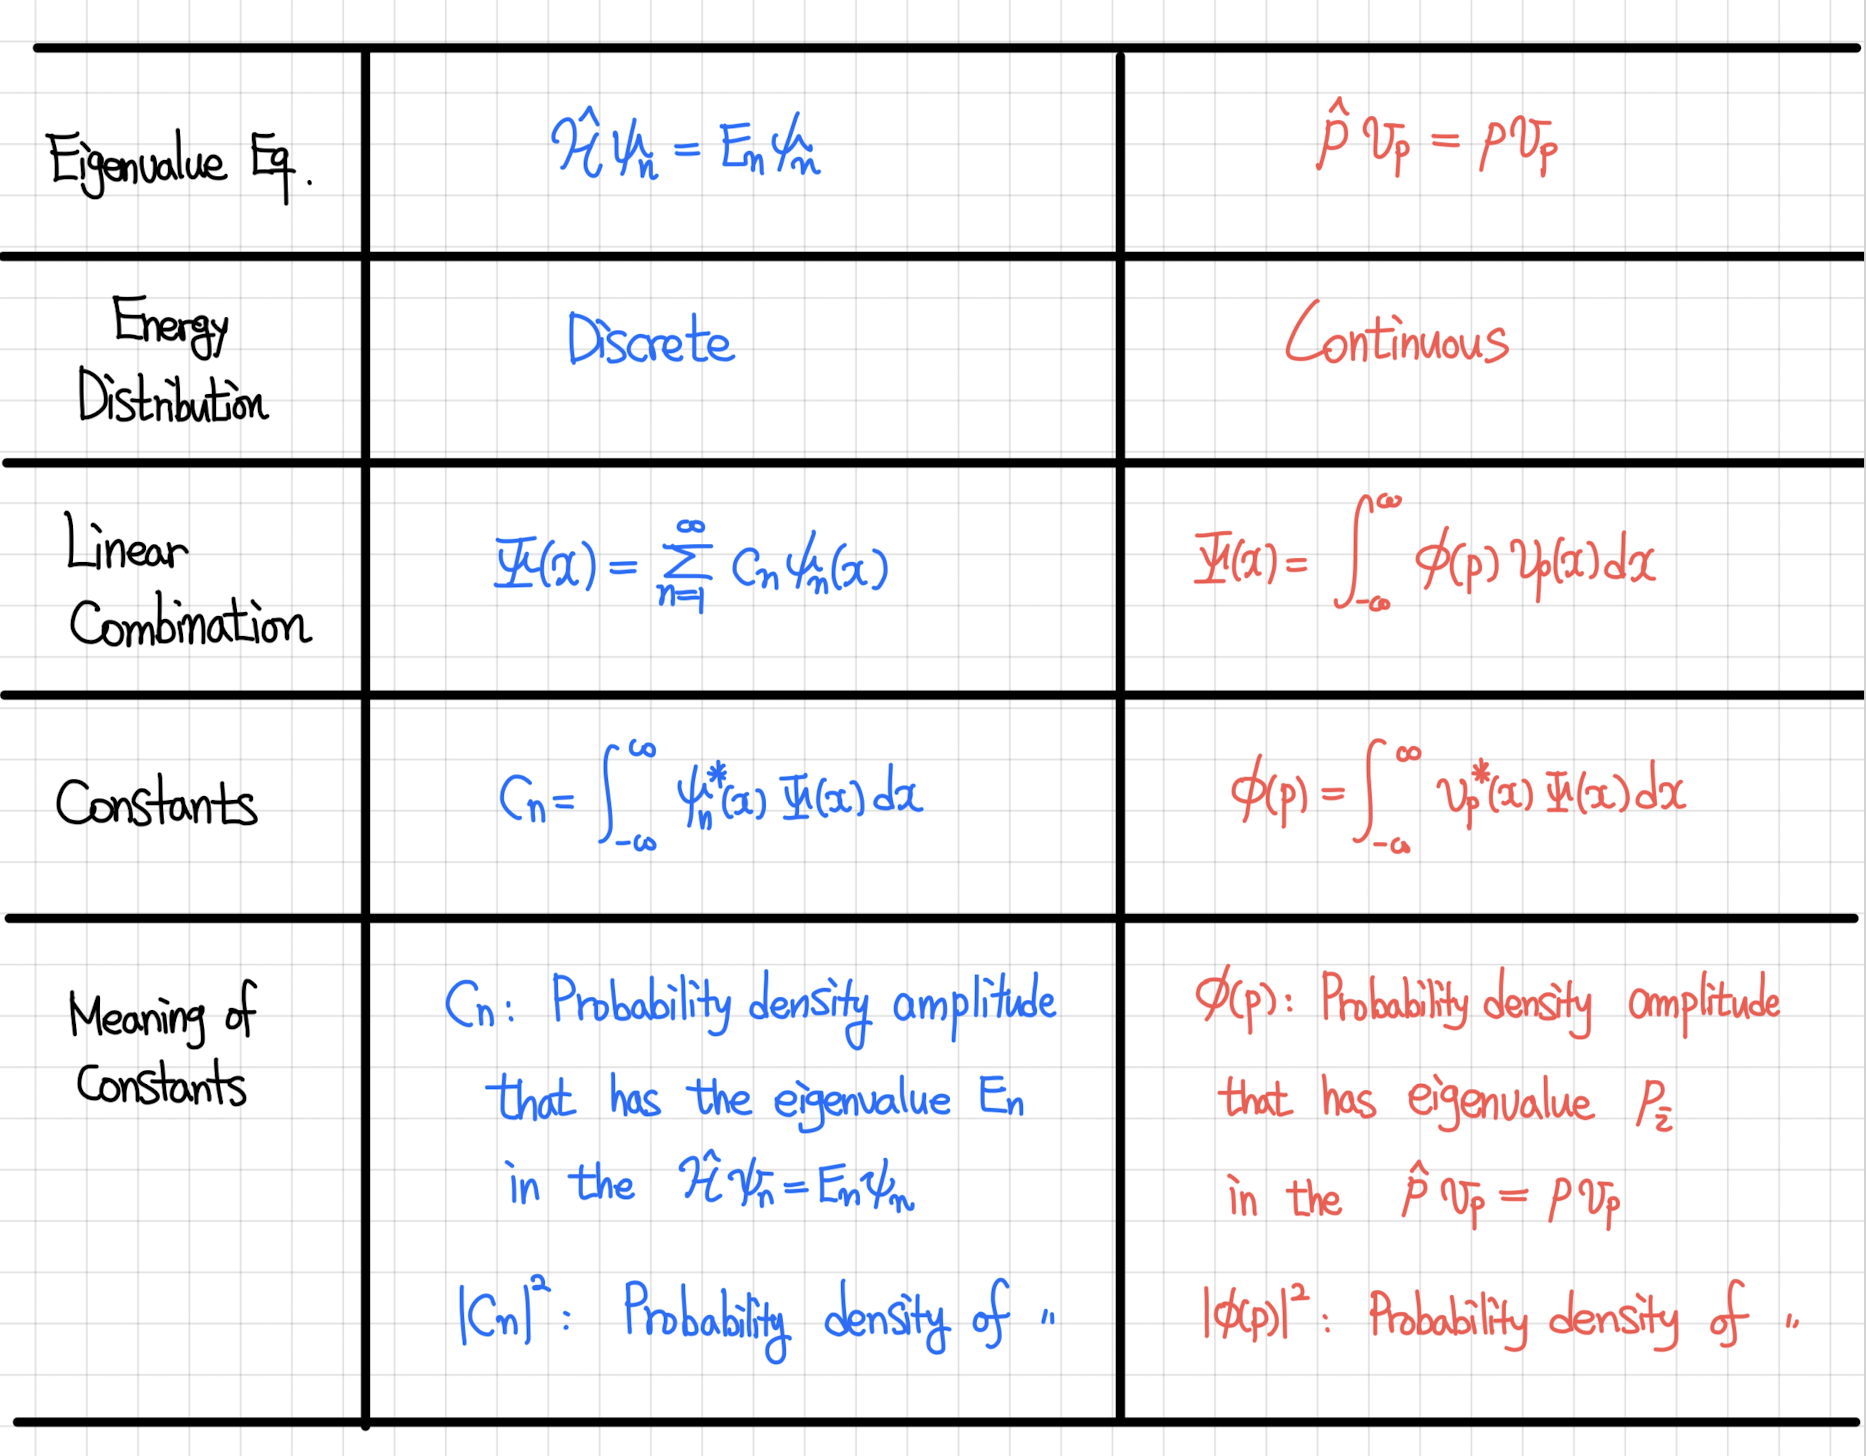 Eigenvalue Eq.
Ĥψₙ = Eₙψₙ
p̂ v_p = p v_p
Energy
Distribution
Discrete
Continuous
Linear
Combination
Ψ(x) = ∑_{n=1}^{∞} Cₙ ψₙ(x)
Ψ(x) = ∫_{-∞}^{∞} ϕ(p) v_p(x) dx
Constants
Cₙ = ∫_{-∞}^{∞} ψₙ*(x) Ψ(x) dx
ϕ(p) = ∫_{-∞}^{∞} v_p*(x) Ψ(x) dx
Meaning of
Constants
Cₙ: Probability density amplitude
that has the eigenvalue Eₙ
in the Ĥψₙ = Eₙψₙ
|Cₙ|²: Probability density of "
ϕ(p): Probability density amplitude
that has eigenvalue
in the p̂ v_p = p v_p
|ϕ(p)|²: Probability density of "